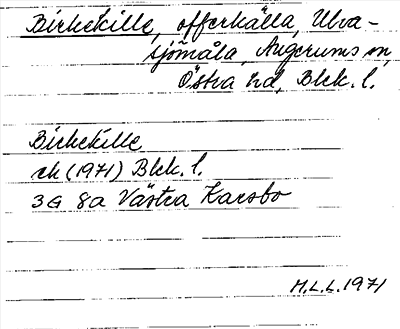 Birkekille, offerkälla, Ulva-
sjömåla, Augerums sn,
Östra hd, Blek. l.
Birkekille
ek (1971) Blek. l.
3G 8a Västra Karsbo
M.L.L. 1971